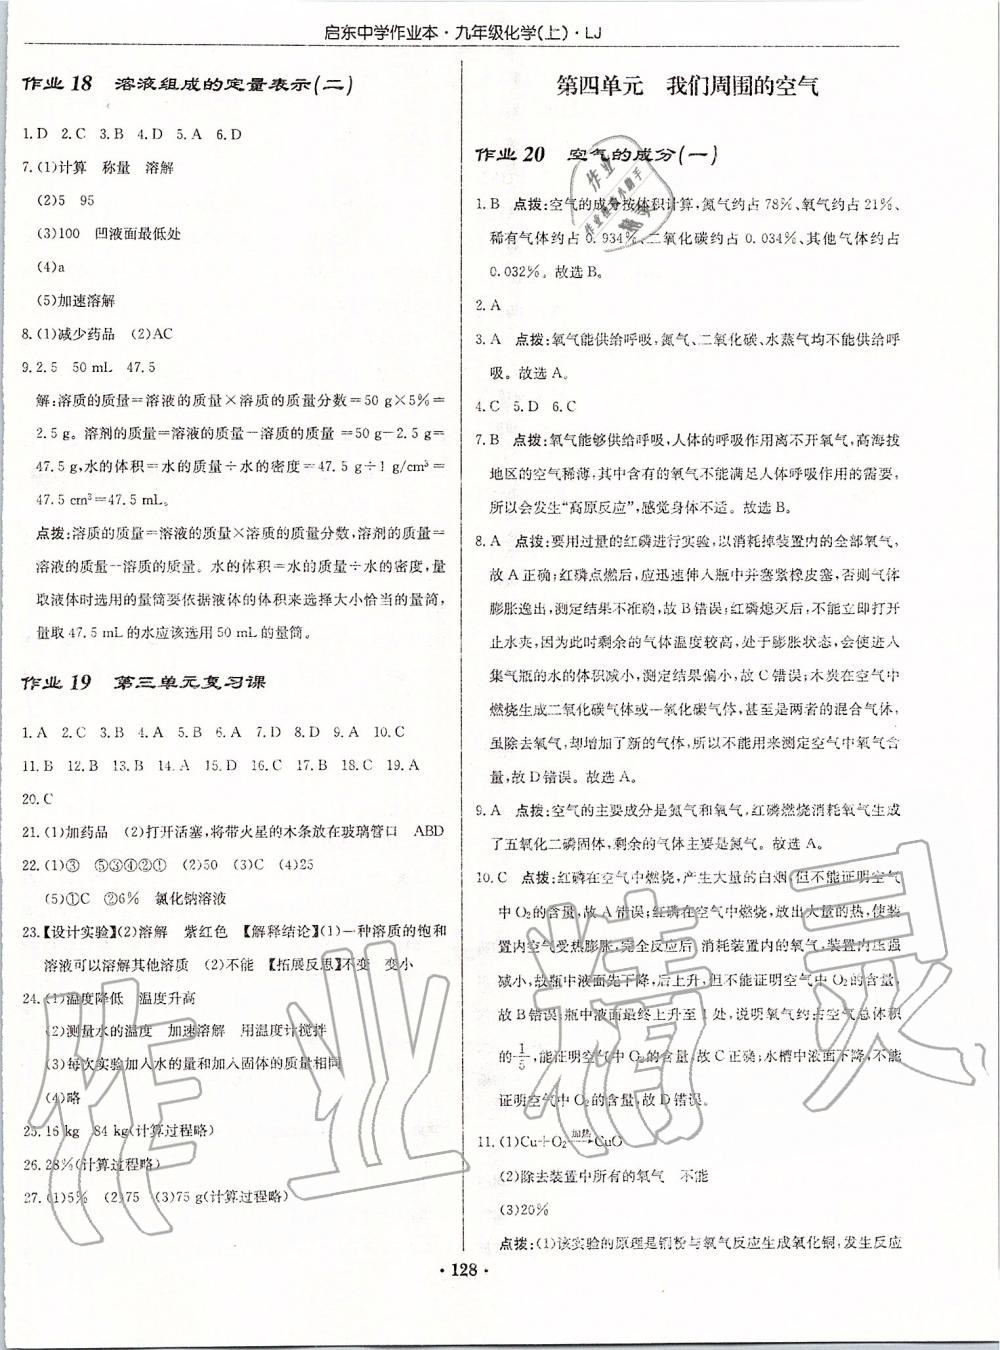 启东中学作业本·九年级化学(上)·LJ
作业 18 溶液组成的定量表示(二)
1.D 2.C 3.B 4.D 5.A 6.D
7.(1)计算 称量 溶解
(2)5 95
(3)100 凹液面最低处
(4)a
(5)加速溶解
8.(1)减少药品 (2)AC
9.2.5 50 mL 47.5
解:溶质的质量=溶液的质量×溶质的质量分数=50 g×5%=
2.5 g。溶剂的质量=溶液的质量-溶质的质量 =50 g-2.5 g=
47.5 g,水的体积=水的质量÷水的密度=47.5 g÷1 g/cm³=
47.5 cm³=47.5 mL。
点拨:溶质的质量=溶液的质量×溶质的质量分数,溶剂的质量=
溶液的质量-溶质的质量。水的体积=水的质量÷水的密度,量
取液体时选用的量筒要依据液体的体积来选择大小恰当的量筒,
量取 47.5 mL 的水应该选用 50 mL 的量筒。
作业 19 第三单元复习课
1.A 2.C 3.B 4.A 5.B 6.A 7.D 8.D 9.A 10.C
11.B 12.B 13.B 14.A 15.D 16.C 17.B 18.C 19.A
20.C
21.(1)加药品 (2)打开活塞,将带火星的木条放在玻璃管口 ABD
22.(1)③ ⑤③④②① (2)50 (3)C (4)25
(5)①C ②6% 氯化钠溶液
23.【设计实验】(2)溶解 紫红色 【解释结论】(1)一种溶质的饱和
溶液可以溶解其他溶质 (2)不能 【拓展反思】不变 变小
24.(1)温度降低 温度升高
(2)测量水的温度 加速溶解 用温度计搅拌
(3)每次实验加入水的量和加入固体的质量相同
(4)略
25.16 kg 84 kg(计算过程略)
26.28%(计算过程略)
27.(1)5% (2)75 (3)75 g(计算过程略)
第四单元 我们周围的空气
作业 20 空气的成分(一)
1.B 点拨:空气的成分按体积计算,氮气约占 78%、氧气约占 21%、
稀有气体约占 0.934%、二氧化碳约占 0.034%、其他气体约占
0.032%。故选 B。
2.A
3.A 点拨:氧气能供给呼吸,氮气、二氧化碳、水蒸气均不能供给呼
吸。故选 A。
4.C 5.D 6.C
7.B 点拨:氧气能够供给呼吸,人体的呼吸作用离不开氧气,高海拔
地区的空气稀薄,其中含有的氧气不能满足人体呼吸作用的需要,
所以会发生“高原反应”,感觉身体不适。故选 B。
8.A 点拨:要用过量的红磷进行实验,以消耗掉装置内的全部氧气,
故 A 正确;红磷点燃后,应迅速伸入瓶中并塞紧橡皮塞,否则气体
膨胀逸出,测定结果不准确,故 B 错误;红磷熄灭后,不能立即打开
止水夹,因为此时剩余的气体温度较高,处于膨胀状态,会使进入
集气瓶的水的体积减小,测定结果偏小,故 C 错误;木炭在空气中
燃烧生成二氧化碳气体或一氧化碳气体,甚至是两者的混合气体,
虽除去氧气,却增加了新的气体,所以不能用来测定空气中氧气含
量,故 D 错误。故选 A。
9.A 点拨:空气的主要成分是氮气和氧气,红磷燃烧消耗氧气生成
了五氧化二磷固体,剩余的气体主要是氮气。故选 A。
10.C 点拨:红磷在空气中燃烧,产生大量的白烟,但不能证明空气
中 O₂的含量,故 A 错误;红磷在空气中燃烧,放出大量的热,使装
置内空气受热膨胀,完全反应后,消耗装置内的氧气,装置内压强
减小,故瓶中液面先下降,后上升,但不能证明空气中 O₂的含量,
故 B 错误;瓶中液面最终上升至 1 处,说明氧气约占空气总体积
的1/5,能证明空气中 O₂的含量,故 C 正确;水槽中液面下降,不能
证明空气中 O₂的含量,故 D 错误。
11.(1)Cu+O₂加热→CuO
(2)除去装置中所有的氧气 不能
(3)20%
点拨:(1)该实验的原理是铜粉与氧气反应生成氧化铜,发生反应
·128·
作业精灵